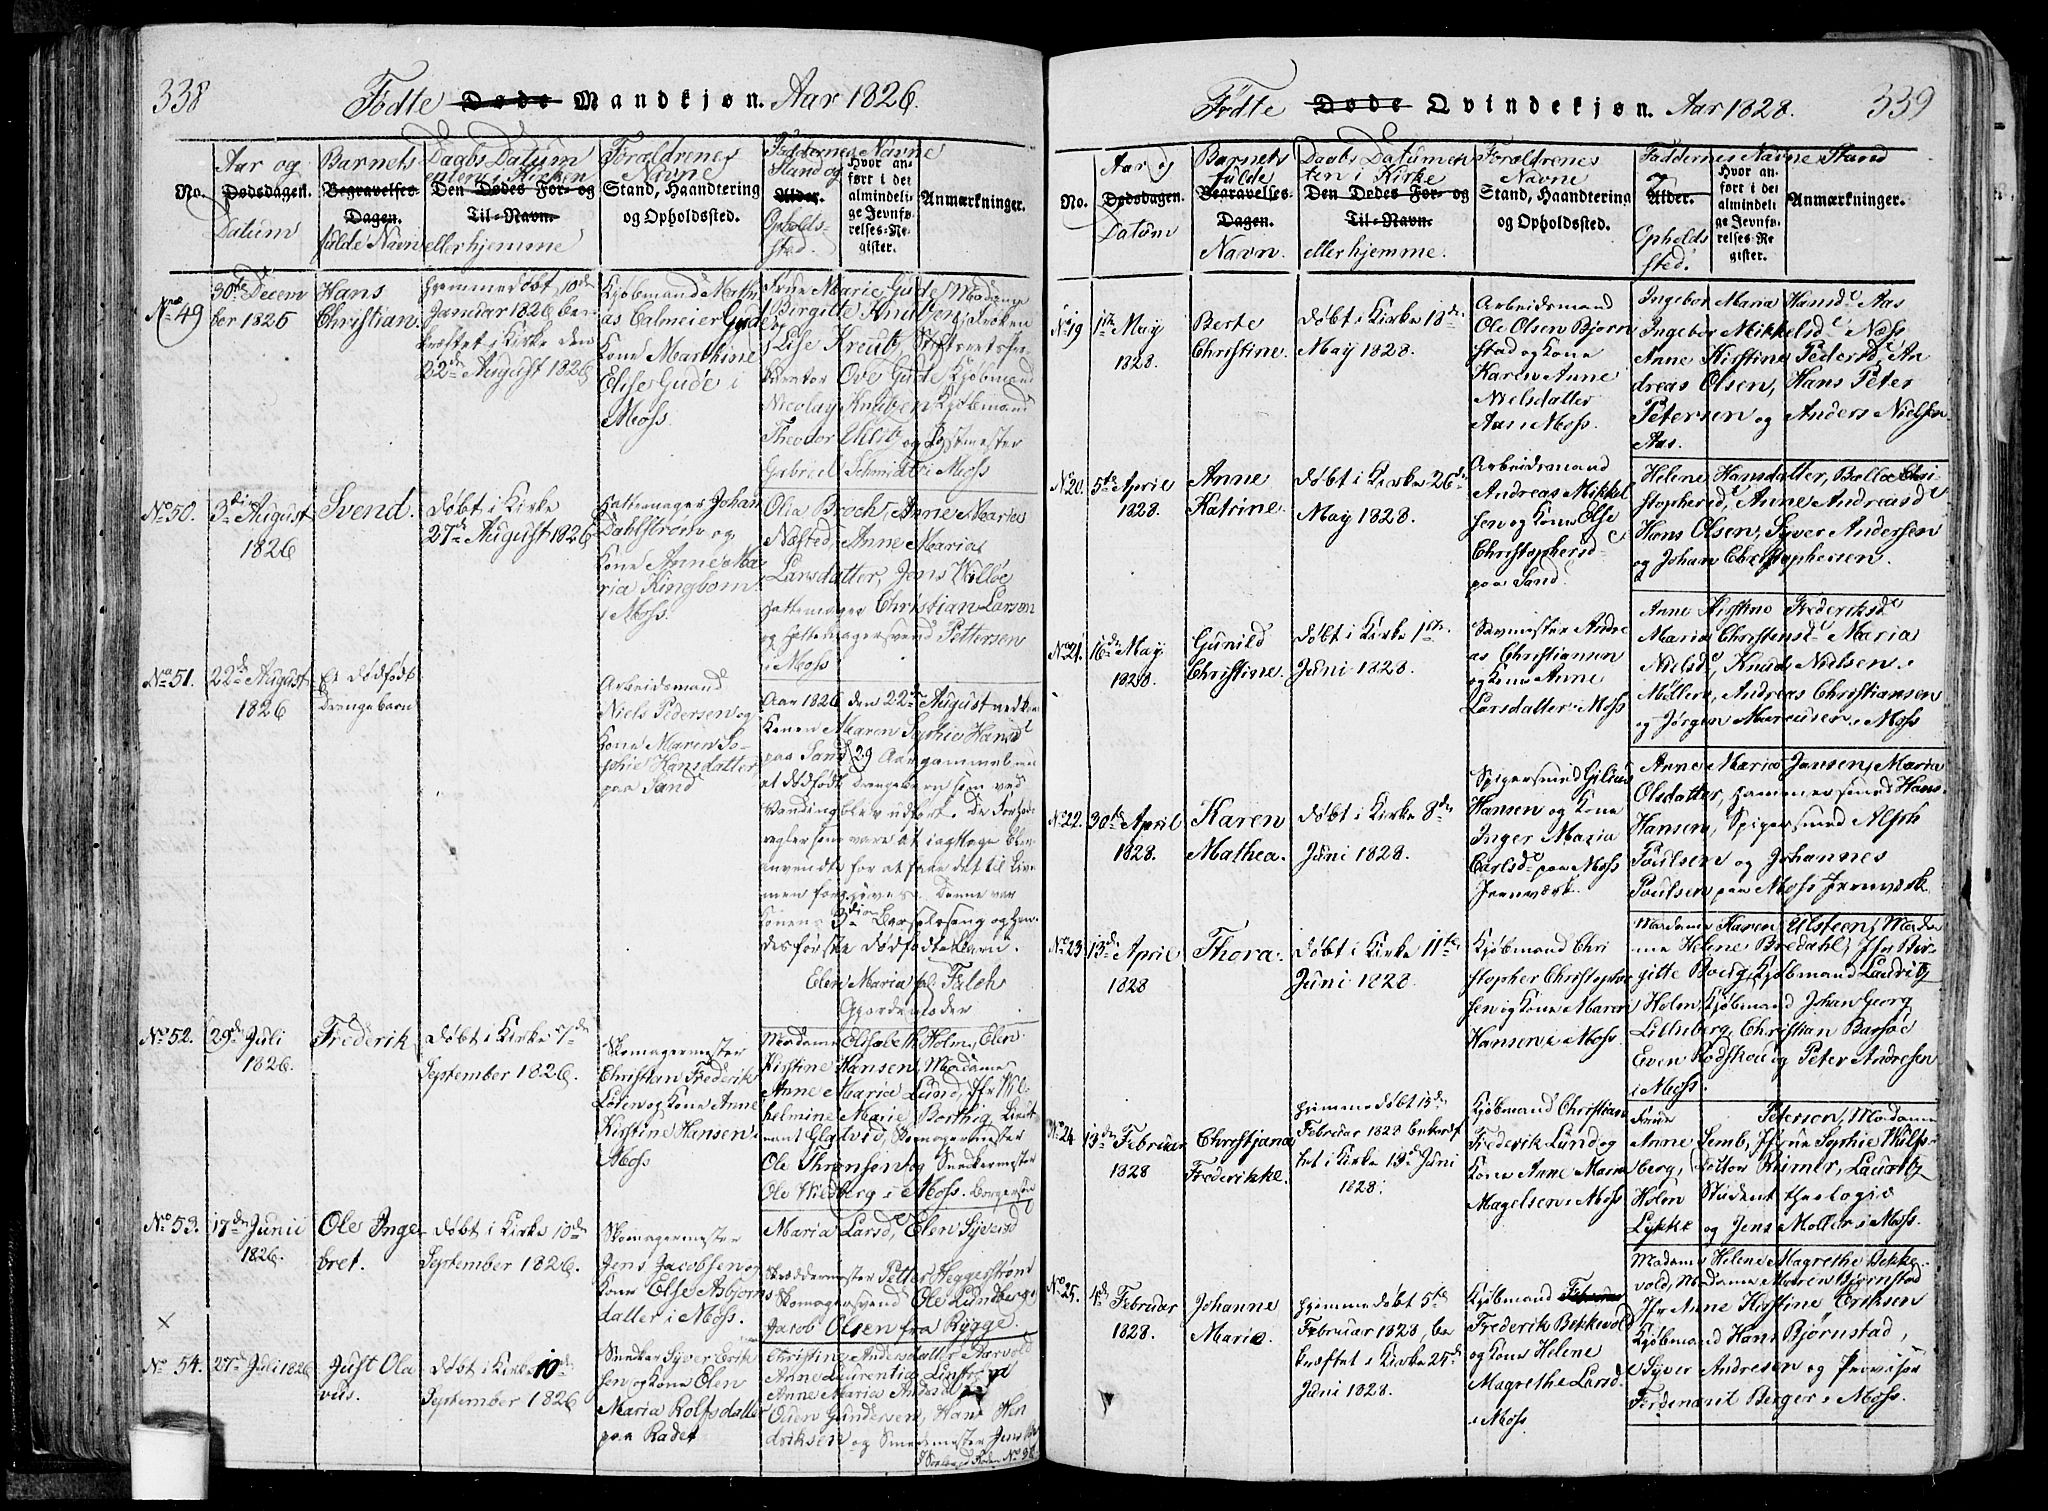 338
Fødte Døde Mandkjøn. Aar 1826.
No.
Aar og
Dødsdagen.
Datum
Barnets
Begravelses-
Dagen.
fulde Navn
Daabs Datum
enten i Kirken
Den Dødes For- og
Til-Navn.
eller hjemme
Forældrenes
Navne
Stand, Haandtering
og Opholdssted.
Faddernes Navne
Stand og
Alder.
Opholds-
sted.
Hvor an-
ført i det
almindeli-
ge Jevnfø-
relses-Re-
gister.
Anmærkninger.
No 49
30te Decem
ber 1825
Hans
Christian.
Hjemmedøbt 10de
Januar 1826 be-
kræftet i Kirke den
22de August 1826
Kjøbmand Mathi
as Calmeier Gude
Kone Marthine
Elise Gude i
Moss.
Frue Marie Gude, Madame
Birgitte Knutzen, Frøken
Lise Kreutz,
Ove Gude, Kjøbmand
Nicolay Knutzen, Kjøbmand
Theodor og Postmester
Gabriel Schmidt i Moss
No 50.
3die August
1826
Svend.
Døbt i Kirke
27de August 1826
Hattemager Johan
Dahlstrøm og
Kone Anne Ma
ria Kingbom
i Moss.
Olia Broch, Anne Maria
Næsted, Anne Maria
Larsdatter, Jens Willoe
Hattemager Christian Larson
og Hattemagersvend Pettersen
i Moss
No 51.
22de August
1826
Et dødfødt
Drengebarn
Arbeidsmand
Niels Pedersen og
Kone Maren So-
phie Hansdatter
paa Sand
Aar 1826 den 22de August
Konen Maren Sophie Hansd
paa Sand 29 Aar gammel
et dødfødt Drengebarn som ved
Vending blev udført. De Forholds
regler som vare at iagttage blev
anvendte for at faae det til Live
men forgjæves. Denne var
Konens 3die Barselseng og hen-
des første dødfødte Barn.
Elen Maria Falch
Gjordemoder
No 52.
29de Juli
1826.
Frederik
Døbt i Kirke 7de
September 1826.
Skomagermester
Christian Frederik
og Kone Anne
Kirstine Hansen i
Moss
Madame Elisabeth Holm, Elen
Kirstine Hansen, Madame
Anne Maria Lund, Jfr Wil-
helmine Marie Borthig, Lieut-
nant Skomagermester
Ole Thronson og Snedkermester
Ole Widberg i Moss.
No 53.
17de Junii
1826.
Ole Inge
bret.
Døbt i Kirke 10de
September 1826.
Skomagermester
Jens Jacobsen og
Kone Else Asbjørns
datter i Moss.
Maria Larsd, Elen Syversd
Skræddermester Petter Heggerstrøm
Skomagersvend Ole Lundberg
Jacob Olsen fra Rygge.
×
No 54.
27de Juli 1826
Just Ola
vus.
Døbt i Kirke 10de
September 1826
Snedker Syver Erik
sen og Kone Elen
Maria Rolfsdatter
paa Kadet
Christine Andersdatter
Anne Laurentia
Anne Maria
Gundersen, Hans Hen
driksen og Smedmester Jens
339
Fødte Døde Qvindekjøn. Aar 1828.
No.
Aar og
Dødsdagen.
Datum
Barnets
fulde
Begravelses-
Dagen.
Navn.
Daabs Datum en
ten i Kirke
Den Dødes For- og
Til-Navn.
eller hjemme.
Forældrenes
Navne
Stand, Haandtering
og Opholdssted.
Faddernes Navne Stand
og
Alder.
Opholds
sted.
Hvor an-
ført i det
almindeli
ge Jevnfø-
relses-Re
gister.
Anmærkninger.
No 19
1ste May
1828.
Berte
Christine.
Døbt i Kirke 18de
May 1828.
Arbeidsmand
Ole Olsen Bjørn
stad og Kone
Karen Anne
Nielsdatter
Aas i Moss.
Ingebor Maria Hansd Aas
Ingebor Mikkelsd Næss
Anne Kirstine Pedersd, An
dreas Olsen, Hans Peter
Petersen og Anders Nielsen
Aas.
No 20.
5te April
1828.
Anne
Katrine.
Døbt i Kirke 26de
May 1828.
Arbeidsmand
Andreas Mikkel
sen og Kone Else
Christophersd
paa Sand.
Helene Hansdatter, Chri
stophersd, Anne Andreasd
Hans Olsen, Syver Andersen
og Johan Christophersen.
No 21.
16de May
1828.
Gunild
Christine.
Døbt i Kirke 1ste
Juni 1828.
Savmester Andre
as Christiansen
og Kone Anne
Larsdatter i Moss
Anne Kirstine Frederiksd
Maria Christensd Maria
Nielsd, Knud Nielsen i
Møllern, Andreas Christiansen
og Jørgen Marcusen i Moss
No 22.
30te April
1828.
Karen
Mathea.
Døbt i Kirke 8de
Juni 1828.
Spigersmed
Hansen og Kone
Inger Maria
Carlsd paa Moss
Jernværk.
Anne Maria Jansen, Maria
Olsdatter, Hammersmed Hans
Hansen, Spigersmed
Poulsen og Johannes
Poulsen paa Moss Jernværk.
No 23
13de April
1828
Thora.
Døbt i Kirke 11te
Juni 1828.
Kjøbmand Chri
stopher Christopher
sen og Kone Maren
Hansen i Moss.
Madame Karen Ulsteen, Mada-
me Helene Bredahl, Jfr Bir-
gitte Boeng, Kjøbmand Lauritz
Holen, Kjøbmand Johan Georg
Lilleberg, Christian Barsøe
Even Rodskou og Peter Andresen
i Moss.
No 24.
13de Februar
1828
Christjana
Frederikke.
Hjemmedøbt 15de
Februar 1828 bekræf
tet i Kirke 19de Juni
1828.
Kjøbmand Christian
Frederik Lund og
Kone Anne Maria
Magelsen i Moss
Frue Petersen, Madame
Anne Semb, Jfrue Sophie Wulfs-
berg, Doktor Reimer, Lauritz
Holen Student theologie
Lykke og Jens Møller i Moss.
No 25.
4de Februar
1828.
Johanne
Marie.
Hjemmedøbt 5te
Februar 1828, be
kræftet i Kirke 25de
Juni 1828.
Kjøbmand
Frederik Bekkevold
og Kone Helene
Magrethe Larsd.
i Moss
Madame Helene Magrethe Bekke-
vold, Madame Maren Bjørnstad
Jfr Anne Kirstine Eriksen
Kjøbmand Hans Bjørnstad,
Syver Andresen og Provisor
Ferdenant Berger i Moss.